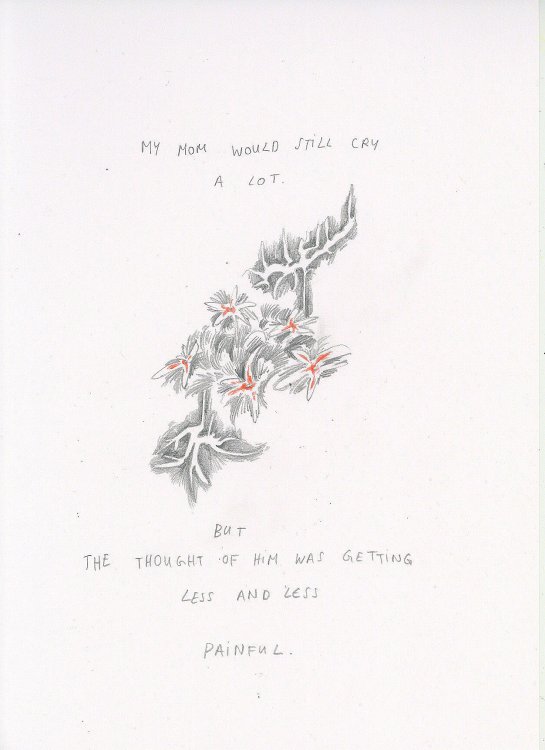 MY MOM WOULD STILL CRY
A LOT.
BUT
THE THOUGHT OF HIM WAS GETTING
LESS AND LESS
PAINFUL.